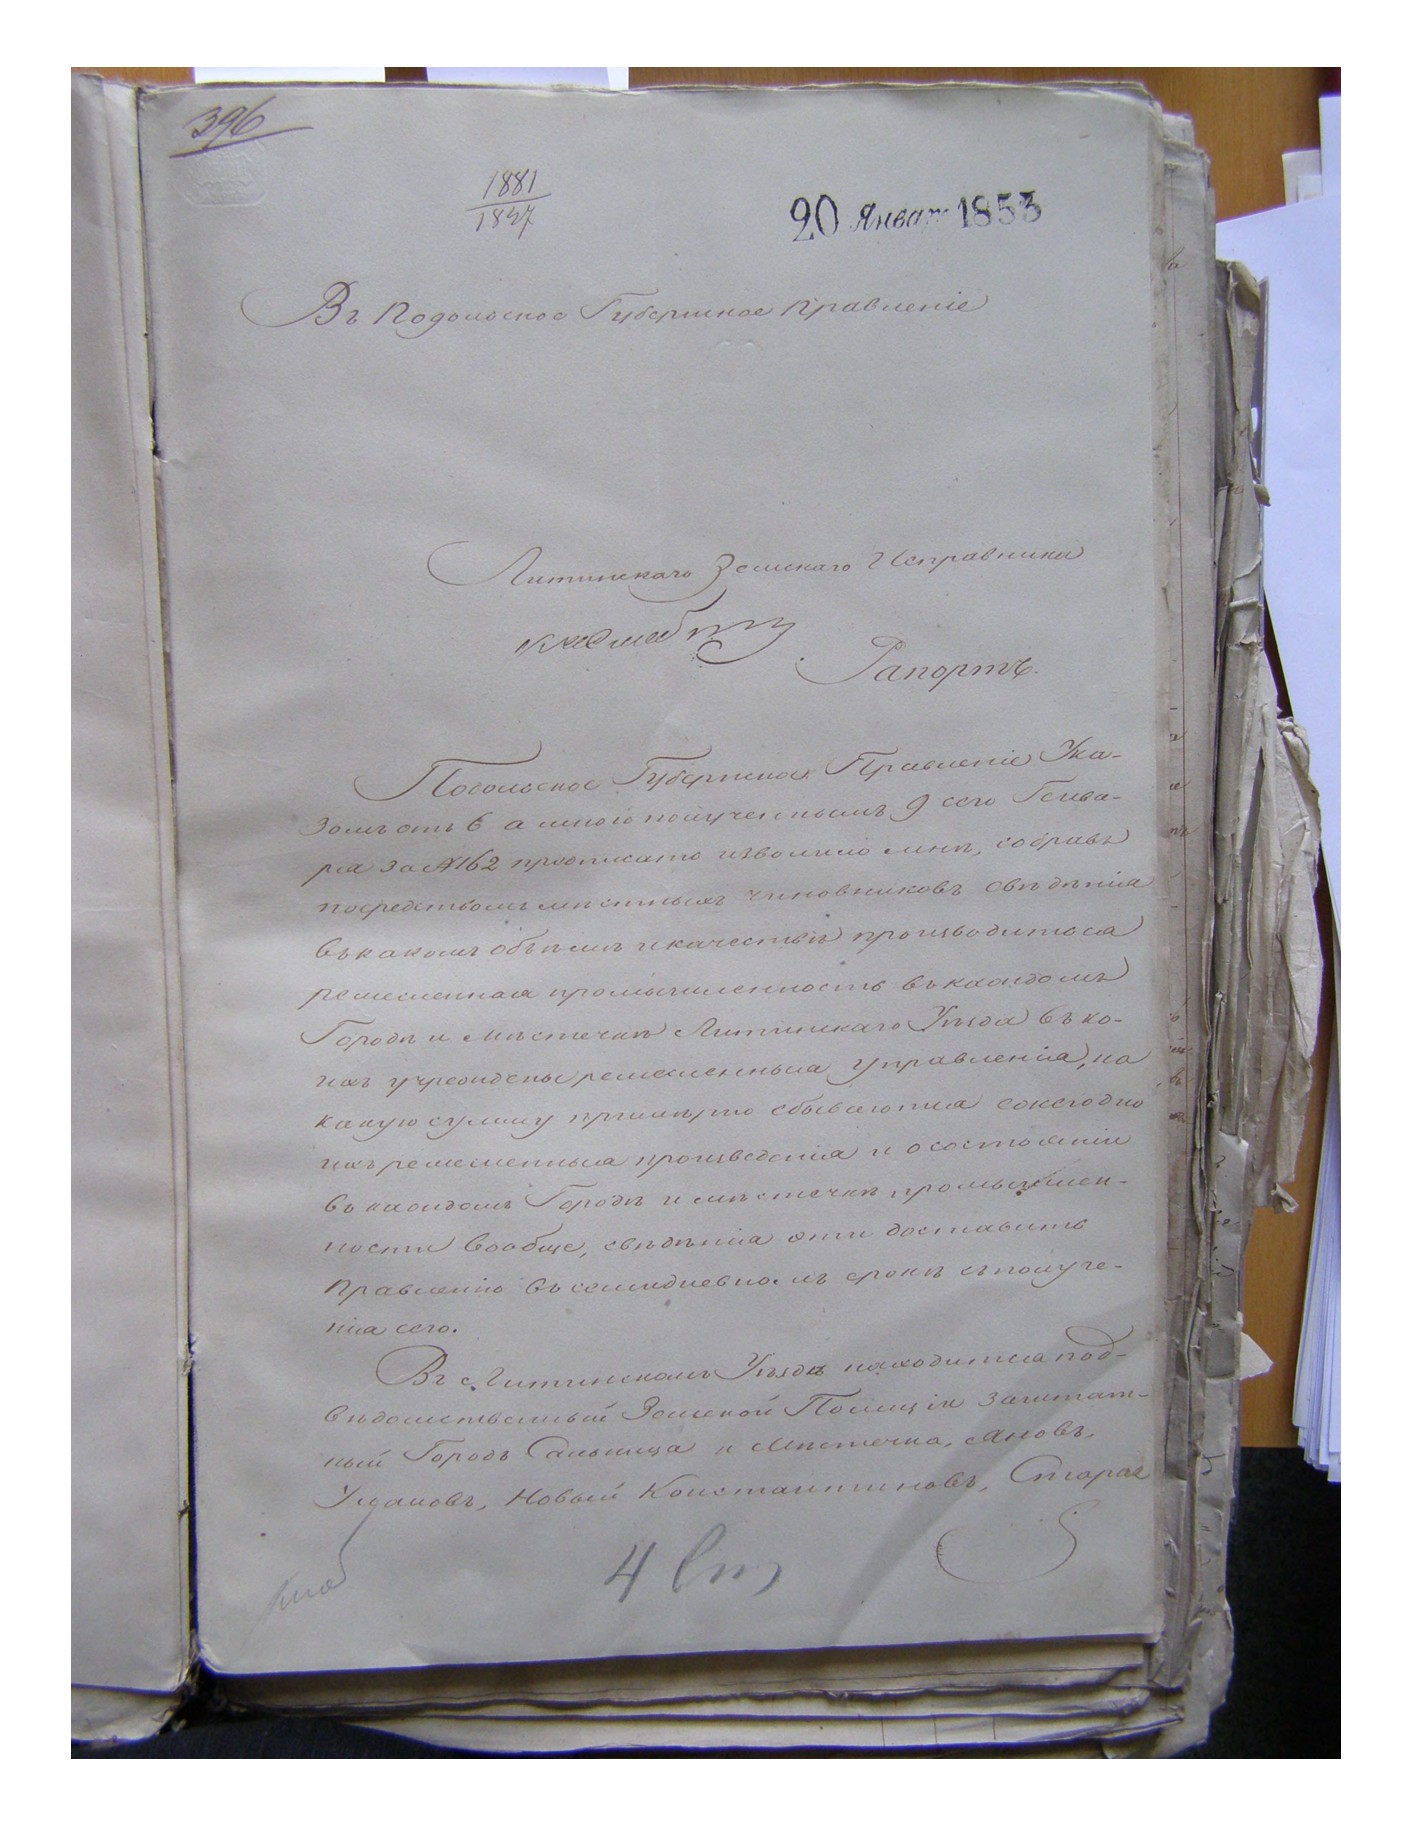 396
1881
1847
20 Январ 1853
Въ Подольское Губернское Правленіе
Литинскаго Земскаго Исправника
Рапортъ.
Подольское Губернское Правленіе Ука-
зомъ отъ 6 а мною полученнымъ 9 сего Генва-
ря за № 162 предписать изволило мнѣ, собравъ
посредствомъ мѣстныхъ чиновниковъ свѣдѣнія
въ какомъ объемѣ и качествѣ производится
ремесленная промышленность въ каждомъ
Городѣ и мѣстечкѣ Литинскаго Уѣзда въ ко-
ихъ учреждены ремесленныя управленія, на
какую сумму примѣрно сбываются ежегодно
ихъ ремесленныя произведенія и о состояніи
въ каждомъ Городѣ и мѣстечкѣ промышлен-
ности вообще, свѣдѣнія эти доставить
Правленію въ семидневномъ срокѣ съ получе-
нія сего.
Въ Литинскомъ Уѣздѣ находится под-
вѣдомственный Земской Полиціи заштат-
ный Городъ Сальница и Мѣстечка, Яновъ,
Уладовъ, Новый Константиновъ, Старая